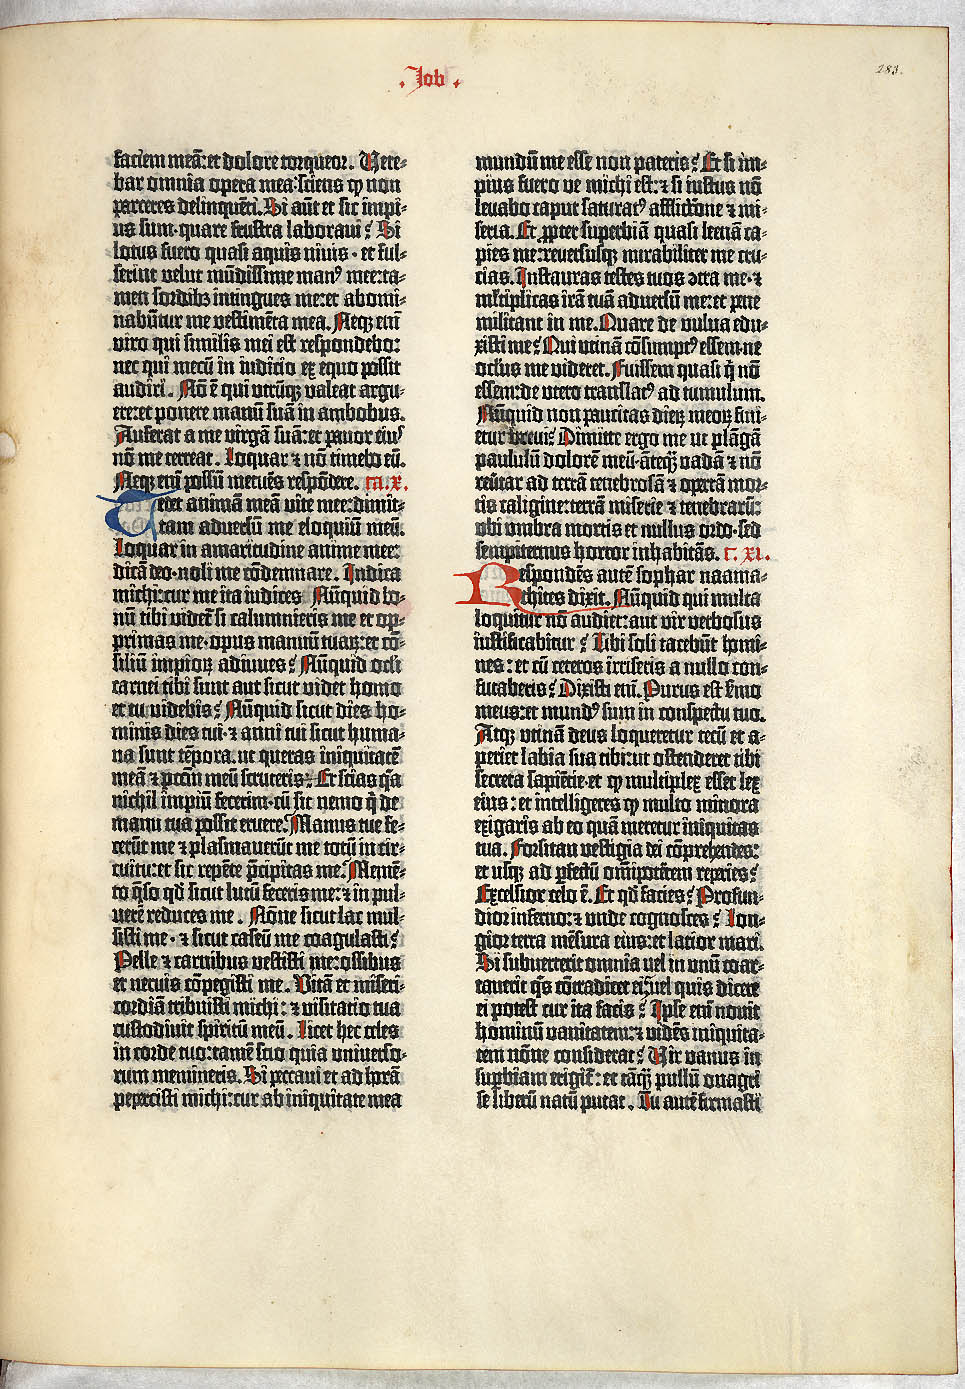 Job
283.
faciem meā: et dolore torqueor. Vere-
bar omnia opera mea: sciens ꝙ non
parceres delinquēti. Si aūt et sic impi-
us sum· quare frustra laboravi? Si
lotus fuero quasi aquis nivis· et ful-
serint velut mūdissime manꝰ mee: ta-
men sordibꝫ intingues me: et abomi-
nabūtur me vestimēta mea. Neqꝫ enī
viro qui similis mei est respondebo:
nec qui mecū in iudicio ex equo possit
audiri. Nō ē qui utrūqꝫ valeat argu-
ere: et ponere manū suā in ambobus.
Auferat a me virgā suā: et pavor eiuꝰ
nō me terreat. Loquar ⁊ nō timebo eū.
Neqꝫ enī possū metuēs respōdere. ca. X.
Tedet animā meā vite mee: dimit-
tam adversū me eloquiū meū.
Loquar in amaritudine anime mee:
dicā deo· noli me cōdemnare. Indica
michi: cur me ita iudices Nūquid bo-
nū tibi videt̄ si calumnieris me et op-
primas me· opus manuū tuaꝝ: et cō-
siliū impioꝝ adiuves? Nūquid oc̄li
carnei tibi sunt aut sicut videt homo
et tu videbis? Nūquid sicut dies ho-
minis dies tui· ⁊ anni tui sicut huma-
na sunt tēpora. ut queras iniquitatē
meā ⁊ pctm̄ meū scruteris? Et scias q̄a
nichil impiū fecerim· cū sit nemo q̄ de
manu tua possit eruere. Manus tue fe-
cerūt me ⁊ plasmaverūt me totū in cir-
cuitu: et sic repēte p̄cipitas me. Memē-
to q̄so qd̄ sicut lutū feceris me: ⁊ in pul-
verē reduces me. Nōne sicut lac mul-
sisti me· ⁊ sicut caseū me coagulasti?
Pelle ⁊ carnibus vestisti me: ossibus
et nervis cōpegisti me. Vitā et miseri-
cordiā tribuisti michi: ⁊ visitatio tua
custodivit spiritū meū. Licet hec celes
in corde tuo: tamē scio quia universo-
rum memineris. Si peccavi et ad horā
pepercisti michi: cur ab iniquitate mea
mundū me esse non pateris? Et si im-
pius fuero ve michi est: ⁊ si iustus nō
levabo caput saturatꝰ afflictōne ⁊ mi-
seria. Et ꝓpter superbiā quasi leenā ca-
pies me: reversusqꝫ mirabiliter me cru-
cias. Instauras testes tuos ↄtra me· ⁊
mltiplicas irā tuā adversū me: et pene
militant in me. Quare de vulva edu-
xisti me? Qui utinā cōsumptꝰ essem· ne
oculus me videret. Fuissem quasi q̄ nō
essem: de utero translatꝰ ad tumulum.
Nūquid non paucitas dieꝝ meoꝝ fini-
etur brevis? Dimitte ergo me ut plāgā
paululū dolorē meū· āteqꝫ vadā ⁊ nō
revertar ad terrā tenebrosā ⁊ opertā mor-
tis caligine: terrā miserie ⁊ tenebrarū:
ubi umbra mortis et nullus ordo· sed
sempiternus horror inhabitās. c. XI.
Respondēs autē sophar naama-
thites dixit. Nūquid qui multa
loquitur nō audiet: aut vir verbosus
iustificabitur? Tibi soli tacebūt homi-
nes: et cū ceteros irriseris a nullo con-
futaberis? Dixisti enī. Purus est ẜmo
meus: et mundꝰ sum in conspectu tuo.
Atqꝫ utinā deus loqueretur tecū et a-
periret labia sua tibi: ut ostenderet tibi
secreta sapiētie· et ꝙ multiplex esset lex
eius: et intelligeres ꝙ multo minora
exigaris ab eo quā meretur iniquitas
tua. Forsitan vestigia dei cōprehendes:
et usqꝫ ad pfectū omīpotētem repies?
Excelsior celo ē. Et qd̄ facies? Profun-
dior inferno: ⁊ unde cognosces? Lon-
gior terra mēsura eius: et latior mari.
Si subverterit omnia vel in unū coar-
taverit q̄s cōtradicet ei: vel quis dicere
ei potest cur ita facis? Ipse enī novit
hominū vanitatem: ⁊ vidēs iniquita-
tem nōne considerat? Vir vanus in
supbiam erigit̄: et tāqꝫ pullū onagri
se liberū natū putat. Tu autē firmasti